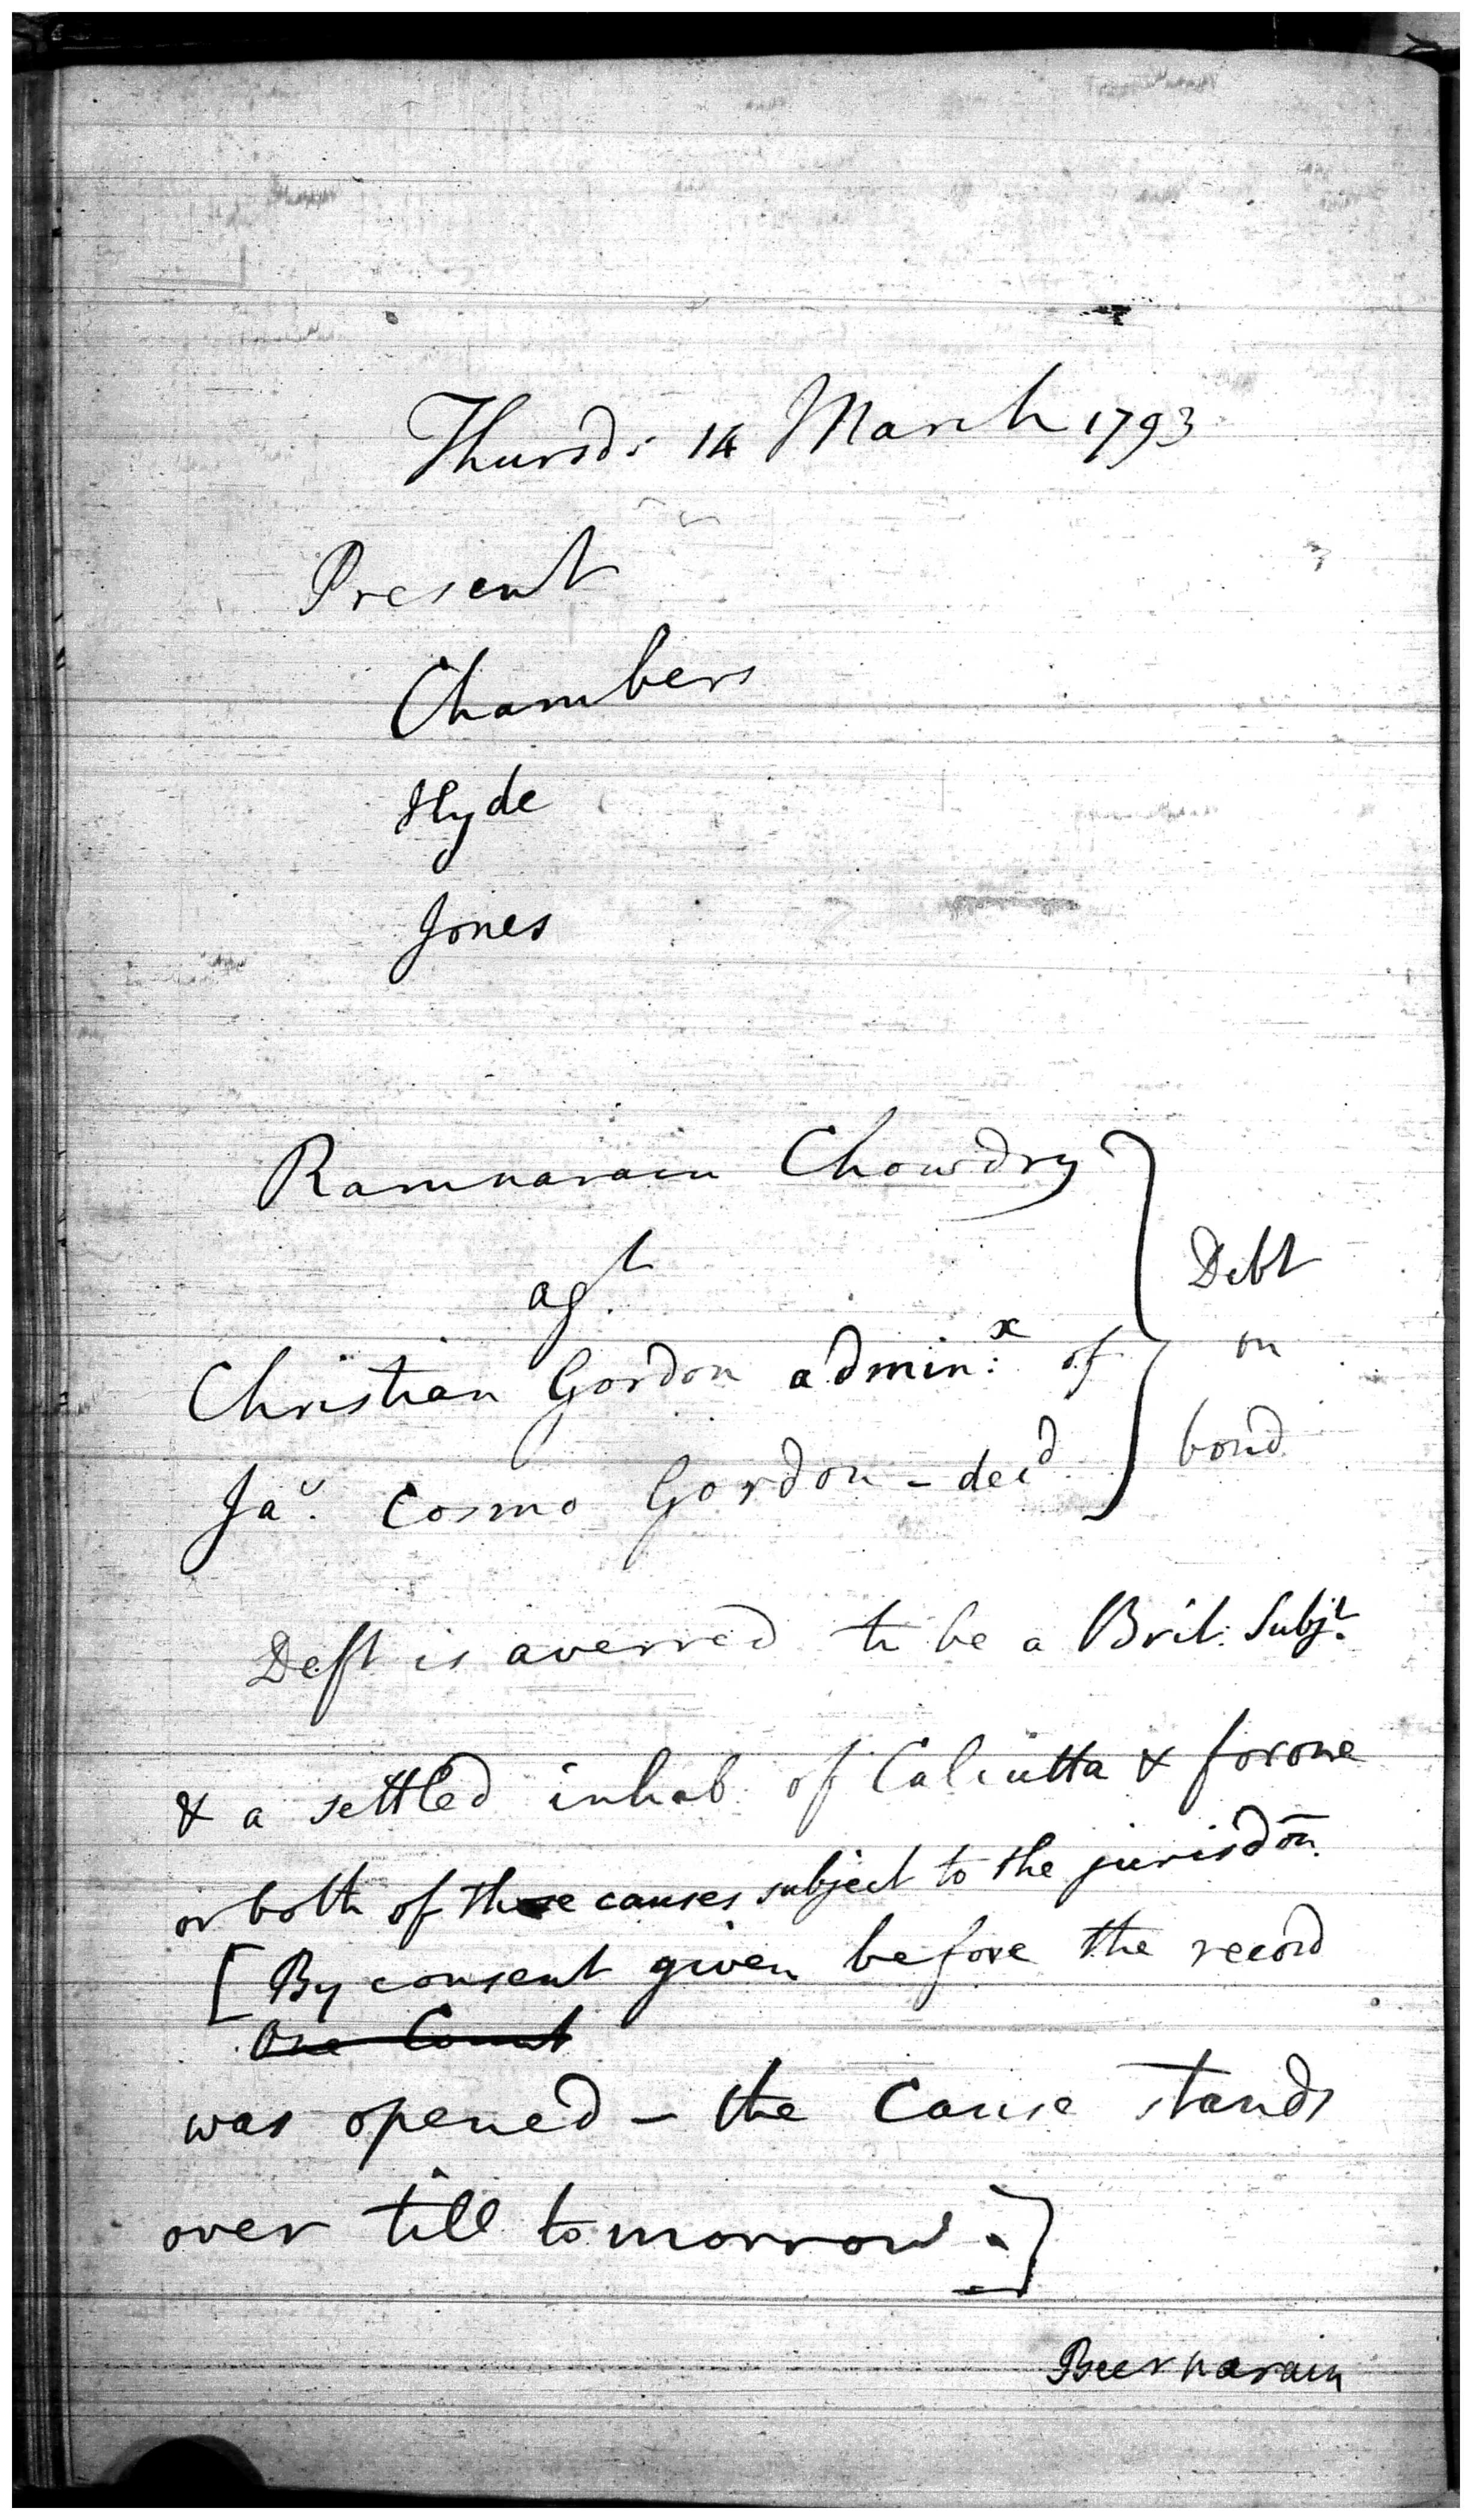 Thursd: 14 March 1793
Present
Chambers
Hyde
Jones
Ramnarain Chowdry
agt.
Debt
Christian Gordon admin:x of
on
Jas. Cosmo Gordon - decd
bond
Deft is averred to be a Brit: Subjt.
& a settled inhab. of Calcutta & for one
or both of these causes subject to the jurisdon.
[By consent given before the record
One Count
was opened - the Cause stands
over till tomorrow.]
Beernarain